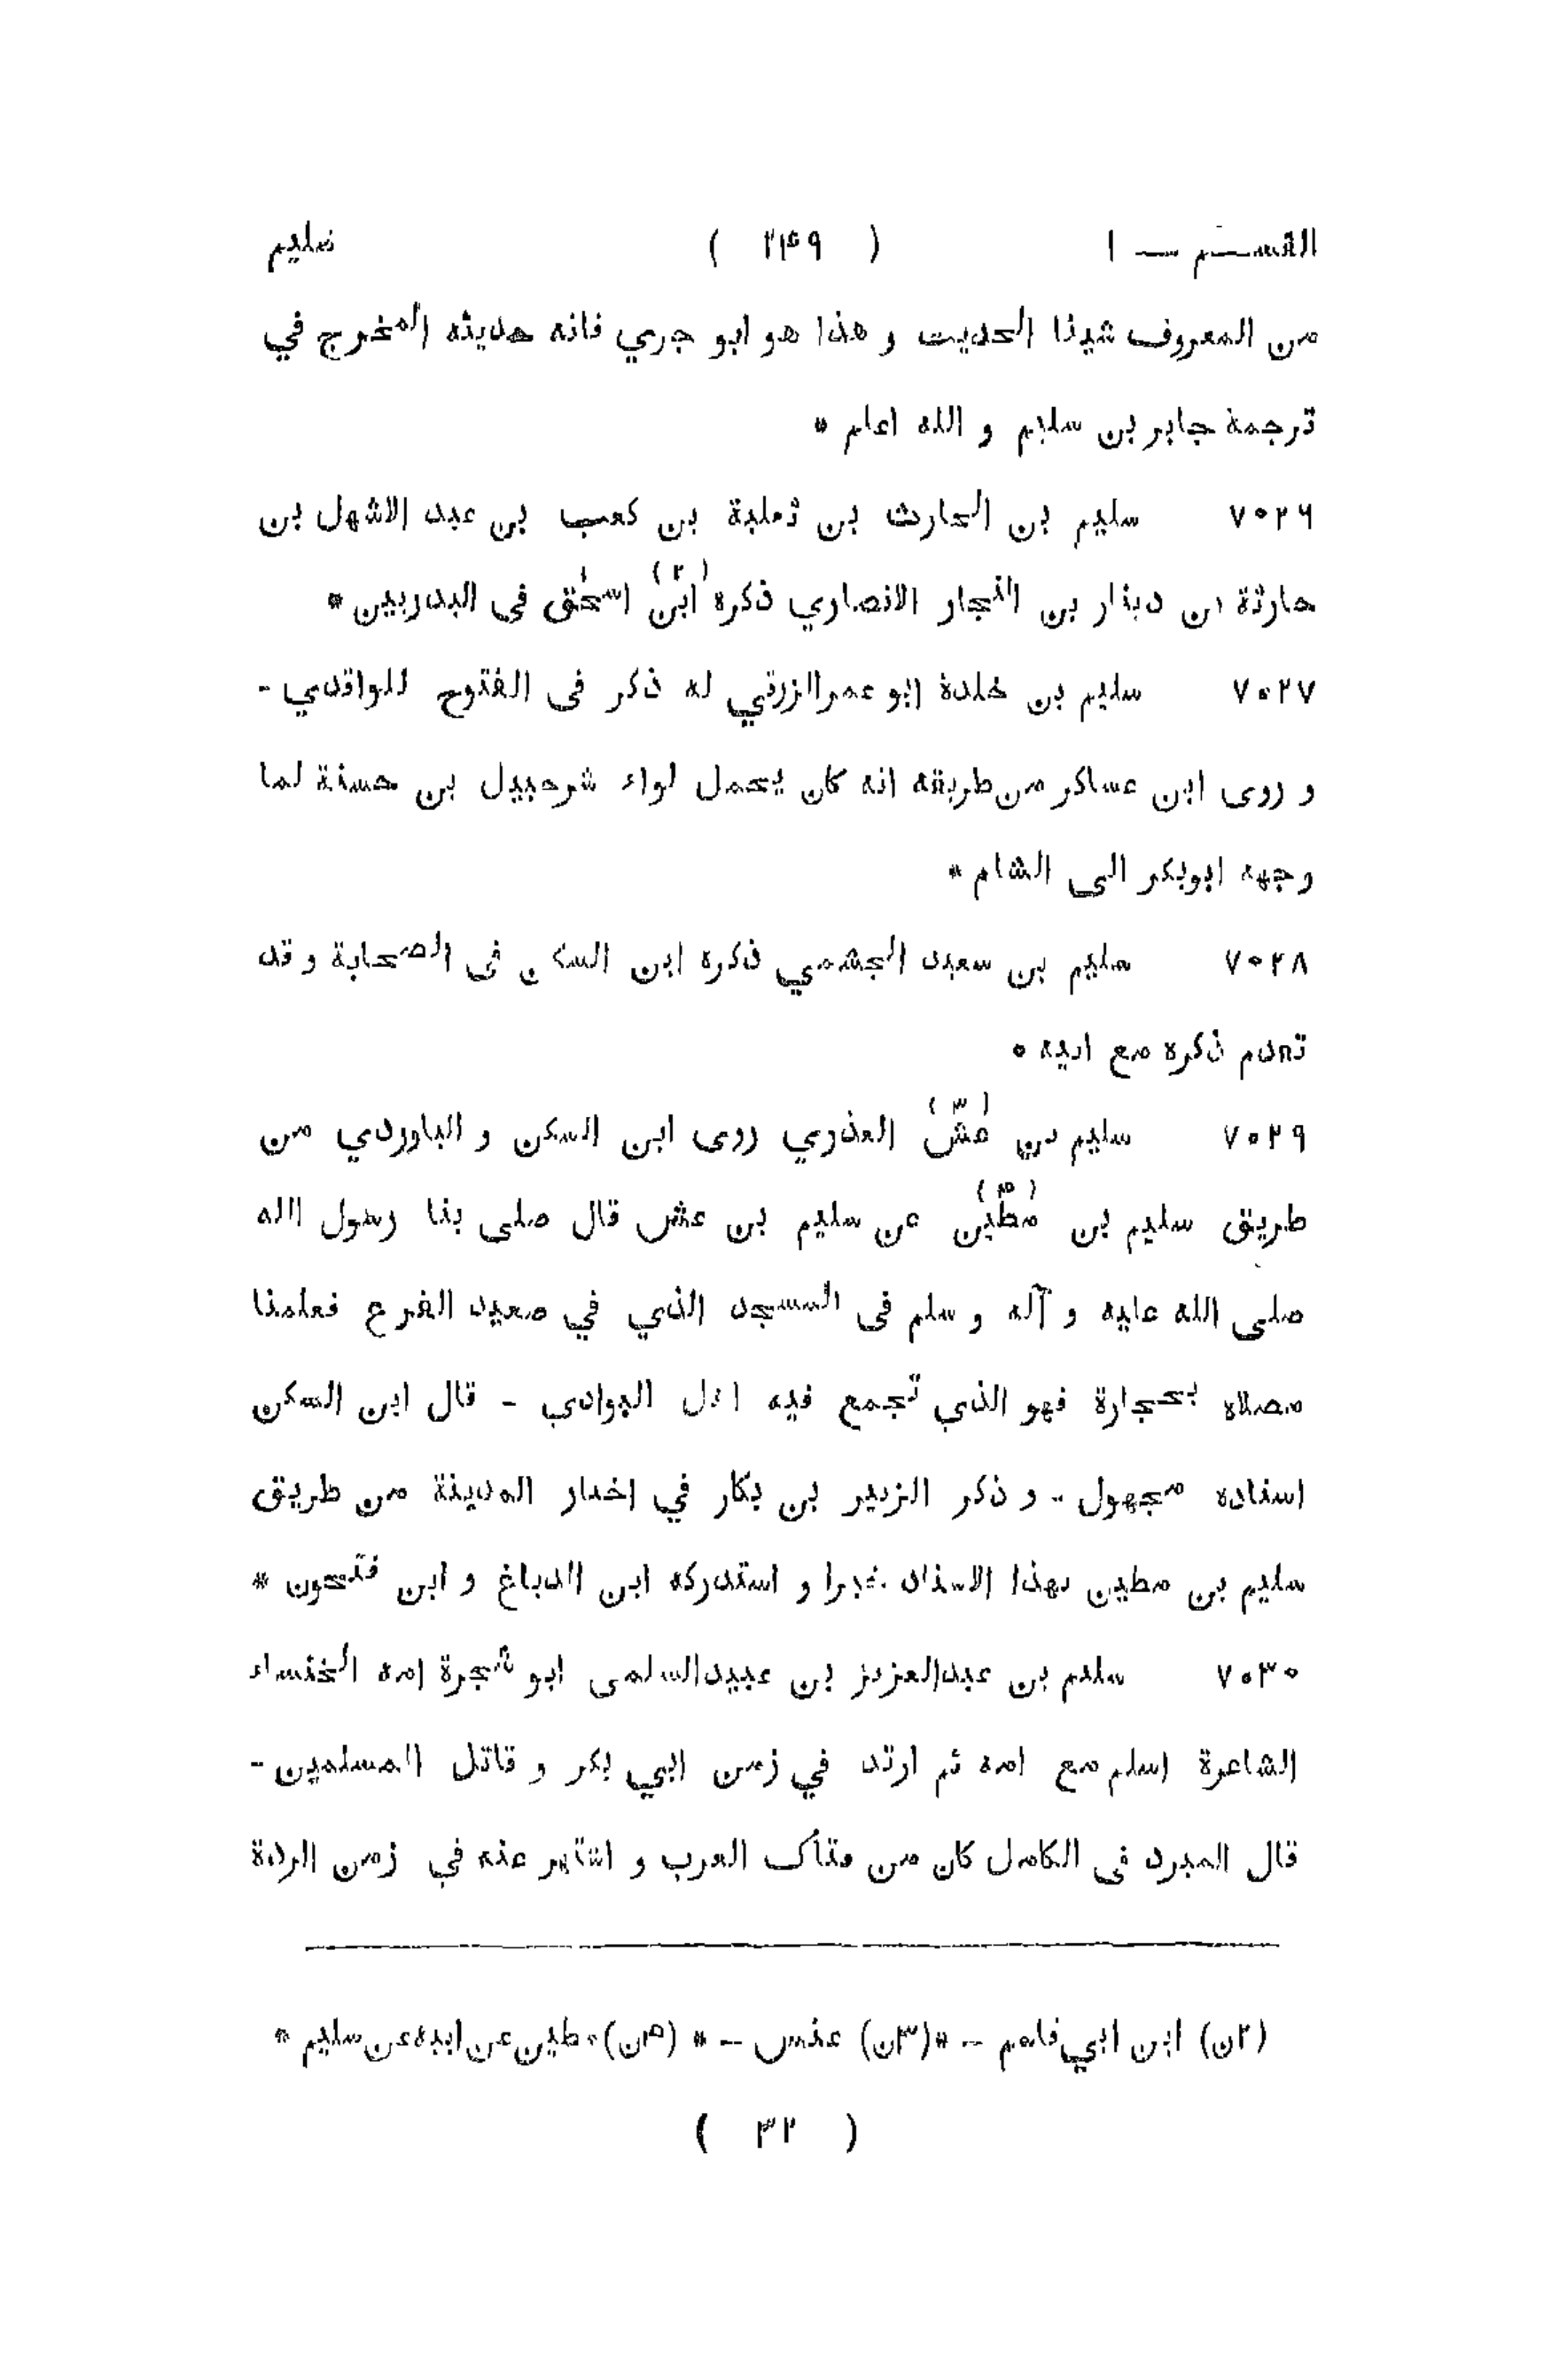 القســم — ١ ( ٢٤٩ ) سليم
من المعروف شيئا الحديث و هذا هو ابو جري فانه حديثه المخرج في
ترجمة جابر بن سليم و الله اعلم *
٧٠٢٦ سليم بن الحارث بن ثعلبة بن كعب بن عبد الاشهل بن
حارثة بن دينار بن النجار الانصاري ذكره ابن (٢) اسحق فى البدريين *
٧٠٢٧ سليم بن خلدة ابو عمر الزرقي له ذكر فى الفتوح للواقدي -
و روى ابن عساكر من طريقه انه كان يحمل لواء شرحبيل بن حسنة لما
وجهه ابوبكر الى الشام *
٧٠٢٨ سليم بن سعيد الجشمي ذكره ابن السكن فى الصحابة و قد
تقدم ذكره مع ابيه *
٧٠٢٩ سليم بن عش (٣) العذري روى ابن السكن و الباوردي من
طريق سليم بن مطين (٤) عن سليم بن عش قال صلى بنا رسول الله
صلى الله عليه و آله و سلم فى المسجد الذي في صعيد القرع فعلمنا
مصلاه بحجارة فهو الذي تجمع فيه اهل البوادي - قال ابن السكن
اسناده مجهول - و ذكر الزبير بن بكار في اخبار المدينة من طريق
سليم بن مطين بهذا الاسناد خبرا و استدركه ابن الدباغ و ابن فتحون *
٧٠٣٠ سليم بن عبدالعزيز بن عبيدالسلمى ابو شجرة امه الخنساء
الشاعرة اسلم مع امه ثم ارتد في زمن ابي بكر و قاتل المسلمين -
قال المبرد فى الكامل كان من فتاك العرب و اشتهر عنه في زمن الردة
(٢ن) ابن ابي - * (٣ن) عنس - * (٤ن) مطين عن ابيه عن سليم *
( ٣٢ )